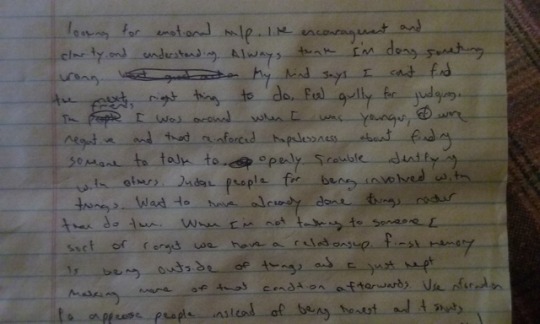 looking for emotional help. like encouragement and
clarity and understanding Always think I'm doing something
wrong My mind says I can't find
the next right thing to do. Feel guilty for judging.
The friends I was around when I was younger, were
negative and that reinforced hopelessness about finding
someone to talk to openly Trouble identifying
with others. Judge people for being involved with
things. Want to have already done things rather
than do them. When I'm not talking to someone I
sort of forget we have a relationship first memory
is being outside of things and I just kept
making more of that condition afterwards. Use information
to appease people instead of being honest and